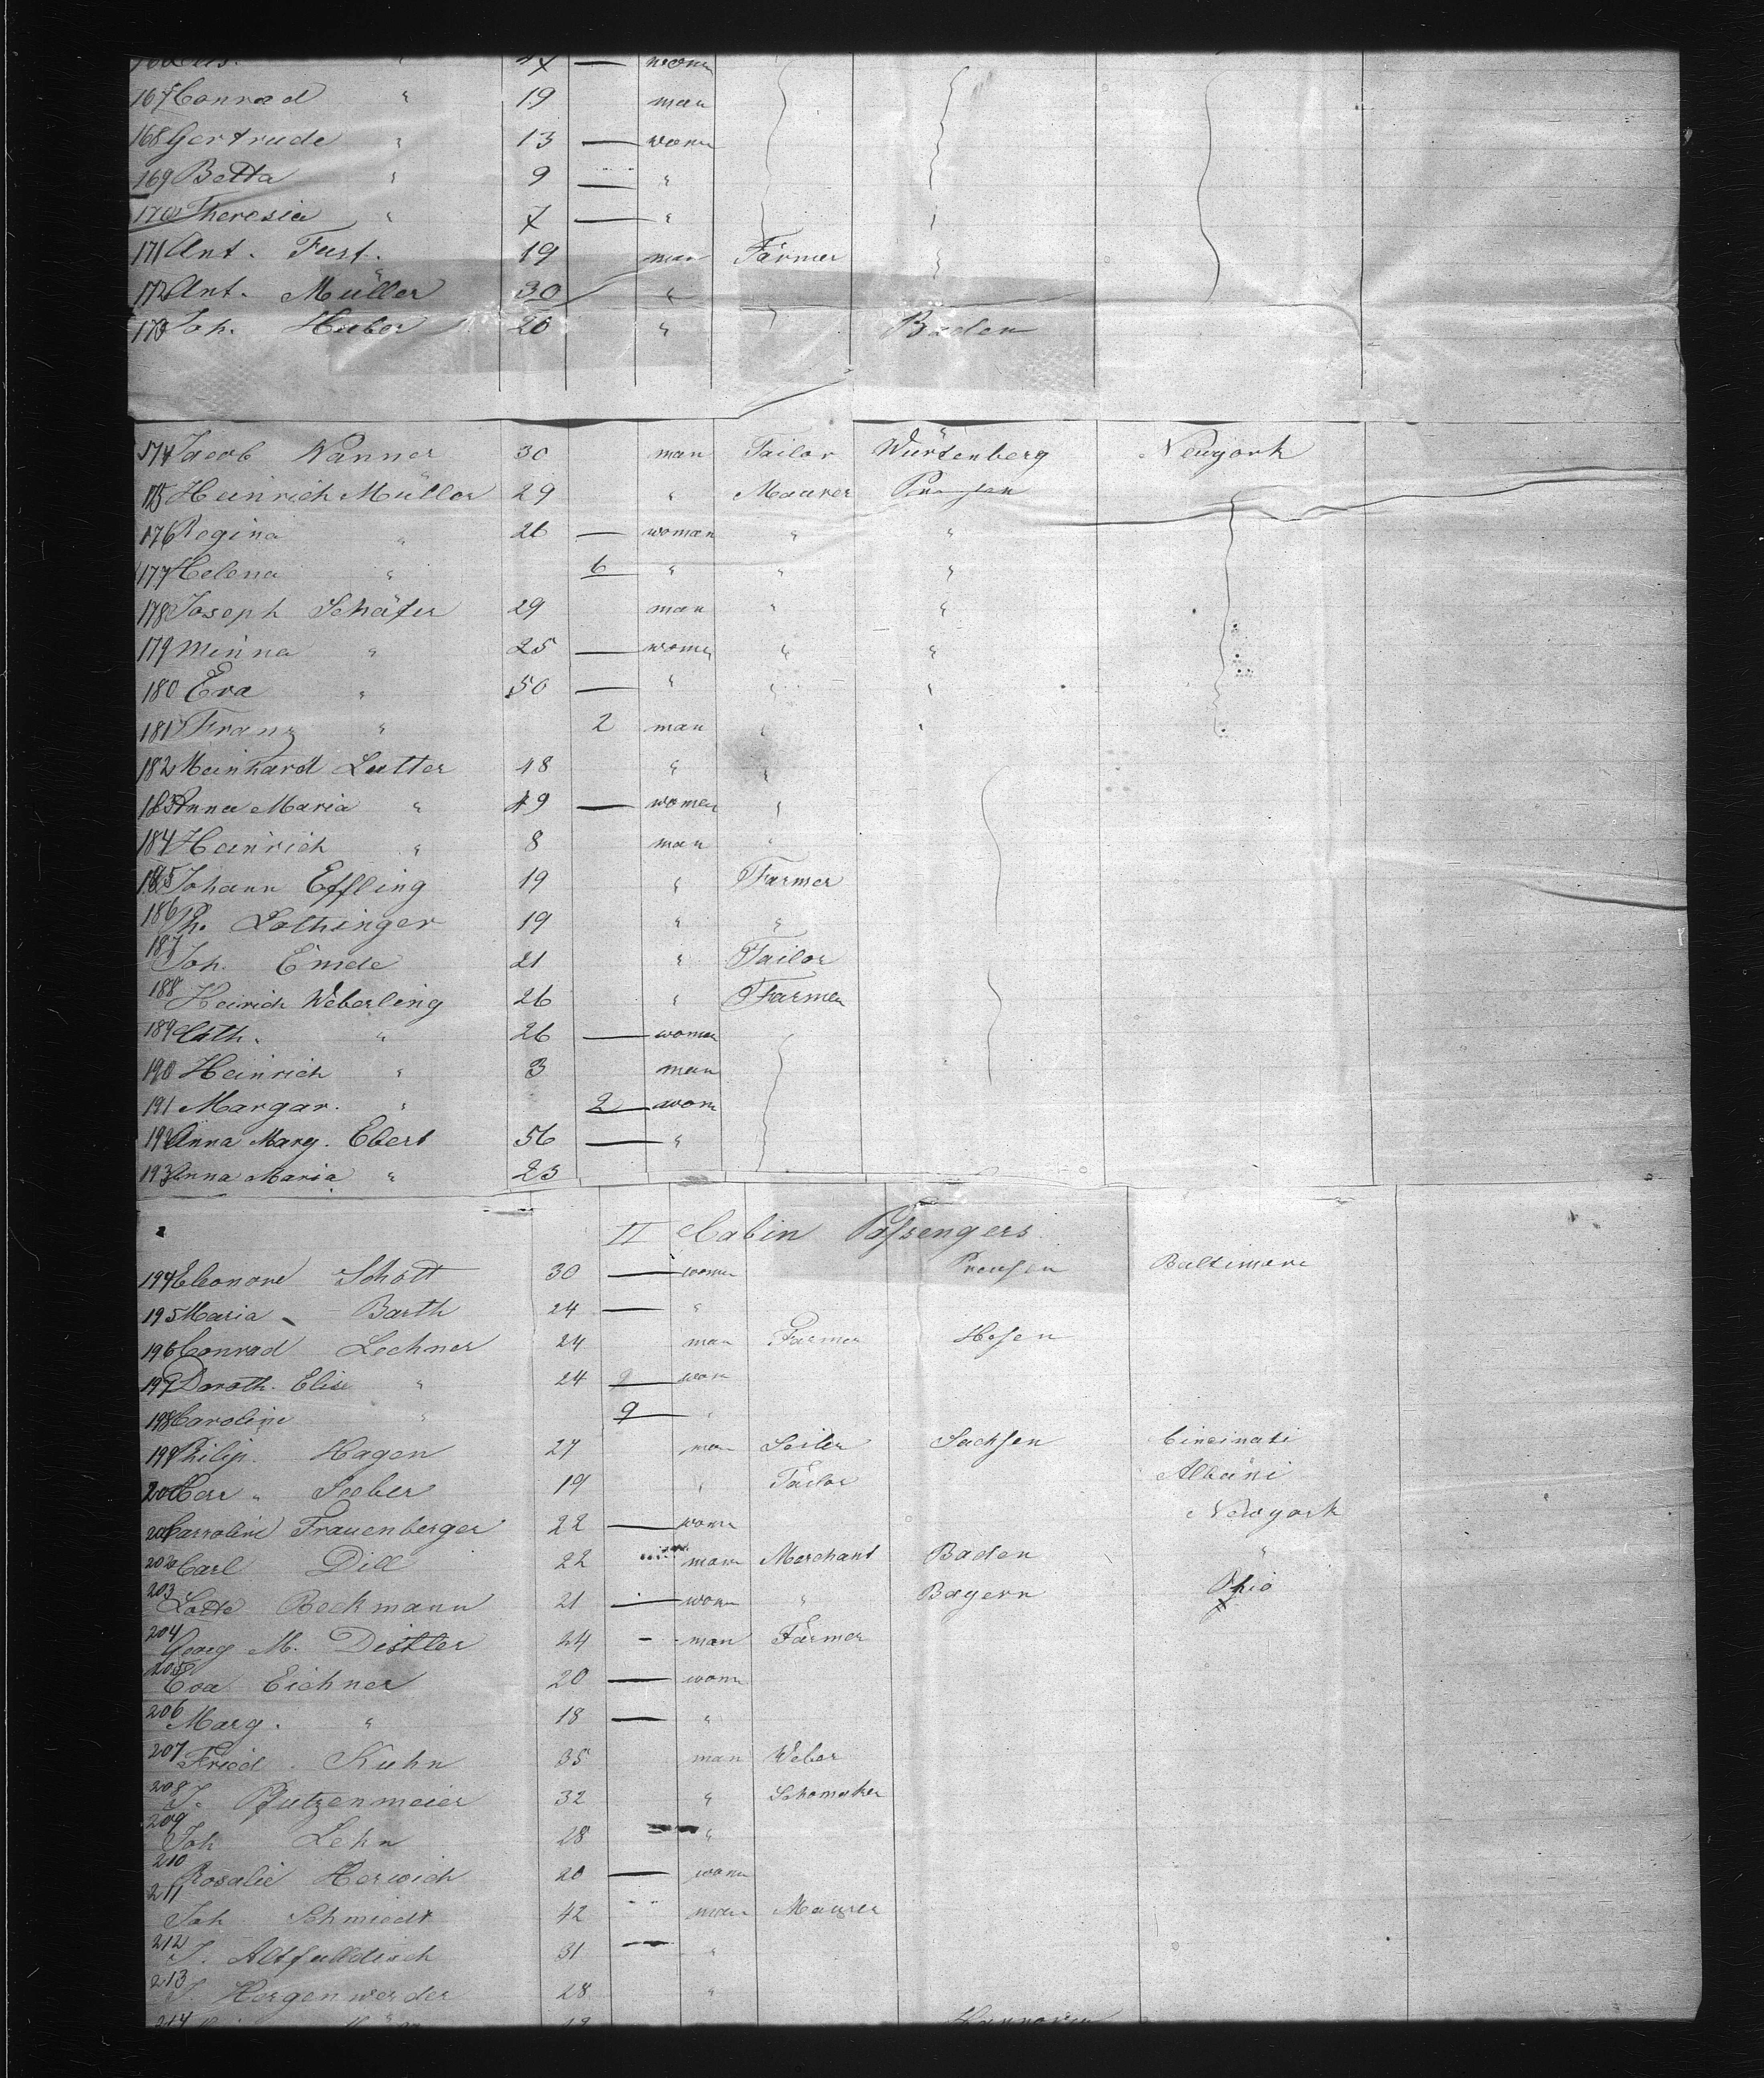 47 — women
167 Conrad " 19 man
168 Gertrude " 13 — women
169 Betta " 9 — "
170 Theresia " 7 — "
171 Ant. Fust. 19 man Farmer
172 Ant. Müller 30 "
173 Joh. Huber 20 " Baden
174 Jacob Wanner 30 man Tailor Würtenberg Newyork
175 Heinrich Müller 29 " Maurer Preusen
176 Regina " 26 — woman " "
177 Helena " 6 " " "
178 Joseph Schäfer 29 man " "
179 Minna " 25 — women " "
180 Eva " 50 — " " "
181 Franz " 2 man " "
182 Meinhard Lutter 48 " "
183 Anna Maria " 49 — women "
184 Heinrich " 8 man "
185 Johann Effling 19 " Farmer
186 Ph. Lothinger 19 " "
187 Joh. Emde 21 " Tailor
188 Heinrich Weberling 26 " Farmer
189 Cath. " 26 — woman
190 Heinrich " 3 man
191 Margar. " 2 wom
192 Anna Marg. Ebert 56 — "
193 Anna Maria " 23
II Cabin Passengers
194 Eleonore Schott 30 — women Preusen Baltimore
195 Maria Barth 24 — "
196 Conrad Lechner 24 man Farmer Hesen
197 Doroth. Elise " 24 — wom
198 Caroline " 9 "
199 Philip. Hagen 27 man Seiler Sachsen Cincinati
200 Seeber 19 " Tailor Albani
201 Carroline Frauenberger 22 — wom Newyork
202 Carl Dill 22 man Merchant Baden "
203 Lotte Beckmann 21 — wom " Bayern Ohio
204 Georg M. Distler 24 - man Farmer
205 Eva Eichner 20 — wom
206 Marg. " 18 — "
207 Fried. Kuhn 35 man Weber
208 J. Pfutzenmeier 32 " Schomaker
209 Joh Lehn 28 "
210 Rosalie Herwich 20 — wom
211 Joh Schmiedt 42 man Maurer
212 J. Altfulldisch 31 "
213 J. Hergenwerder 28 "
214 Hannover